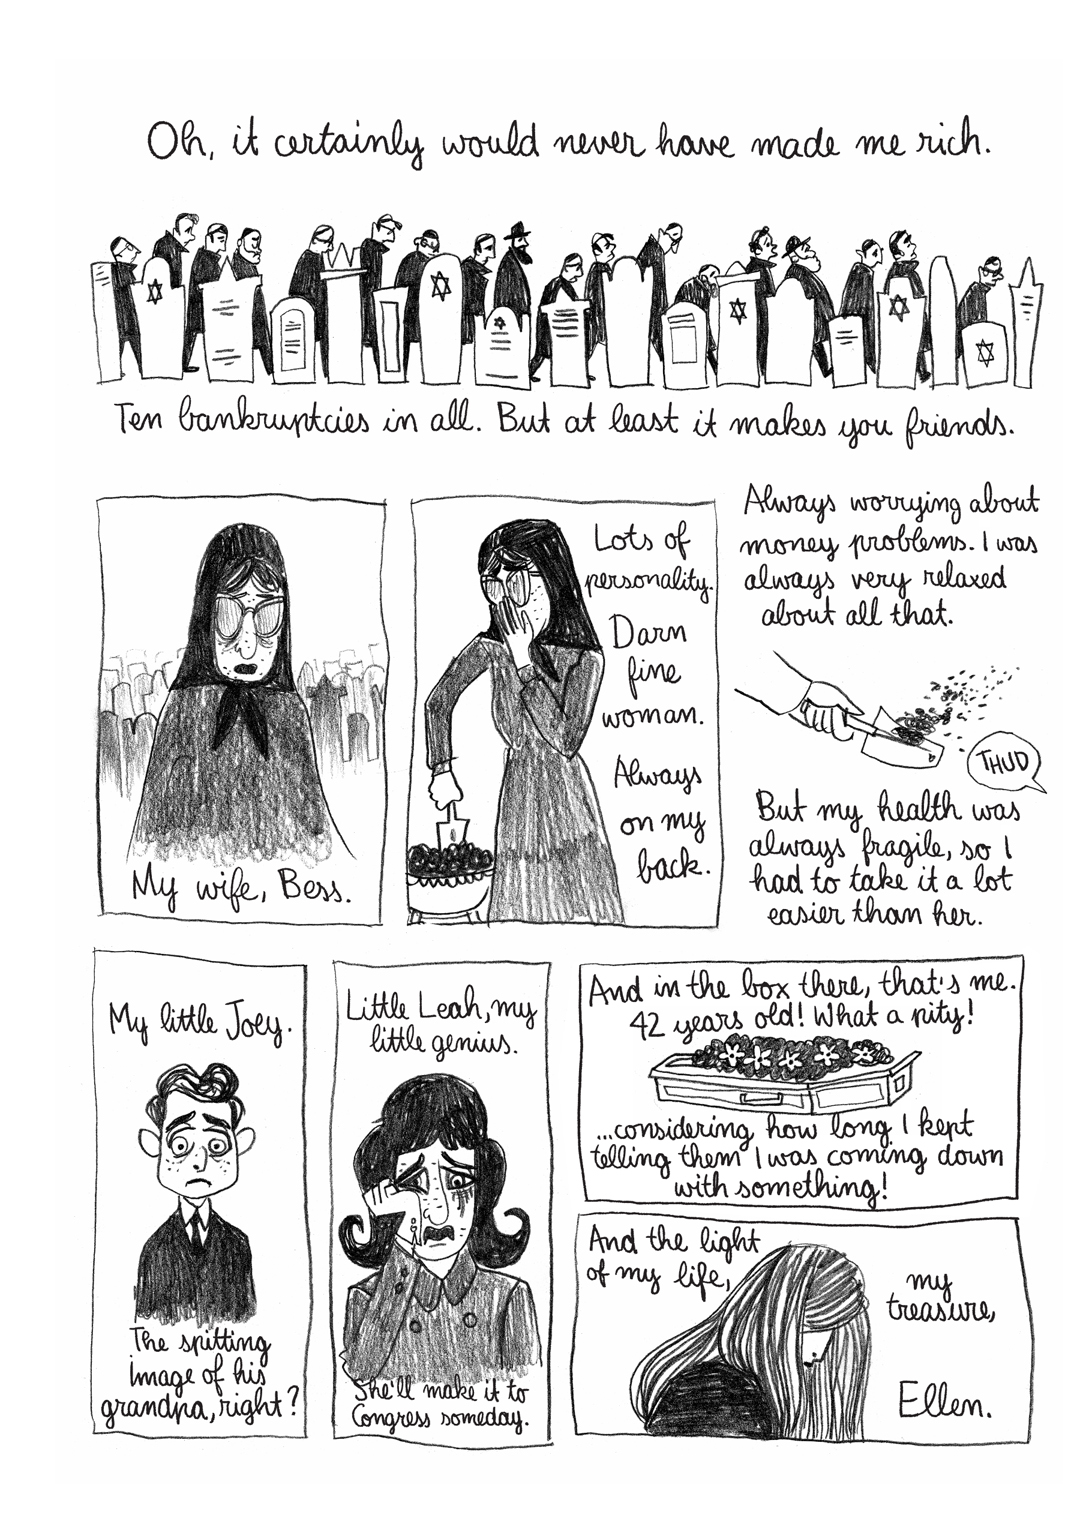 Oh, it certainly would never have made me rich.
Ten bankruptcies in all. But at least it makes you friends.
My wife, Bess.
Lots of
personality.
Darn
fine
woman.
Always
on my
back.
Always worrying about
money problems. I was
always very relaxed
about all that.
THUD
But my health was
always fragile, so I
had to take it a lot
easier than her.
My little Joey.
The spitting
image of his
grandpa, right?
Little Leah, my
little genius.
She'll make it to
Congress someday.
And in the box there, that's me.
42 years old! What a pity!
...considering how long I kept
telling them I was coming down
with something!
And the light
of my life,
my
treasure,
Ellen.